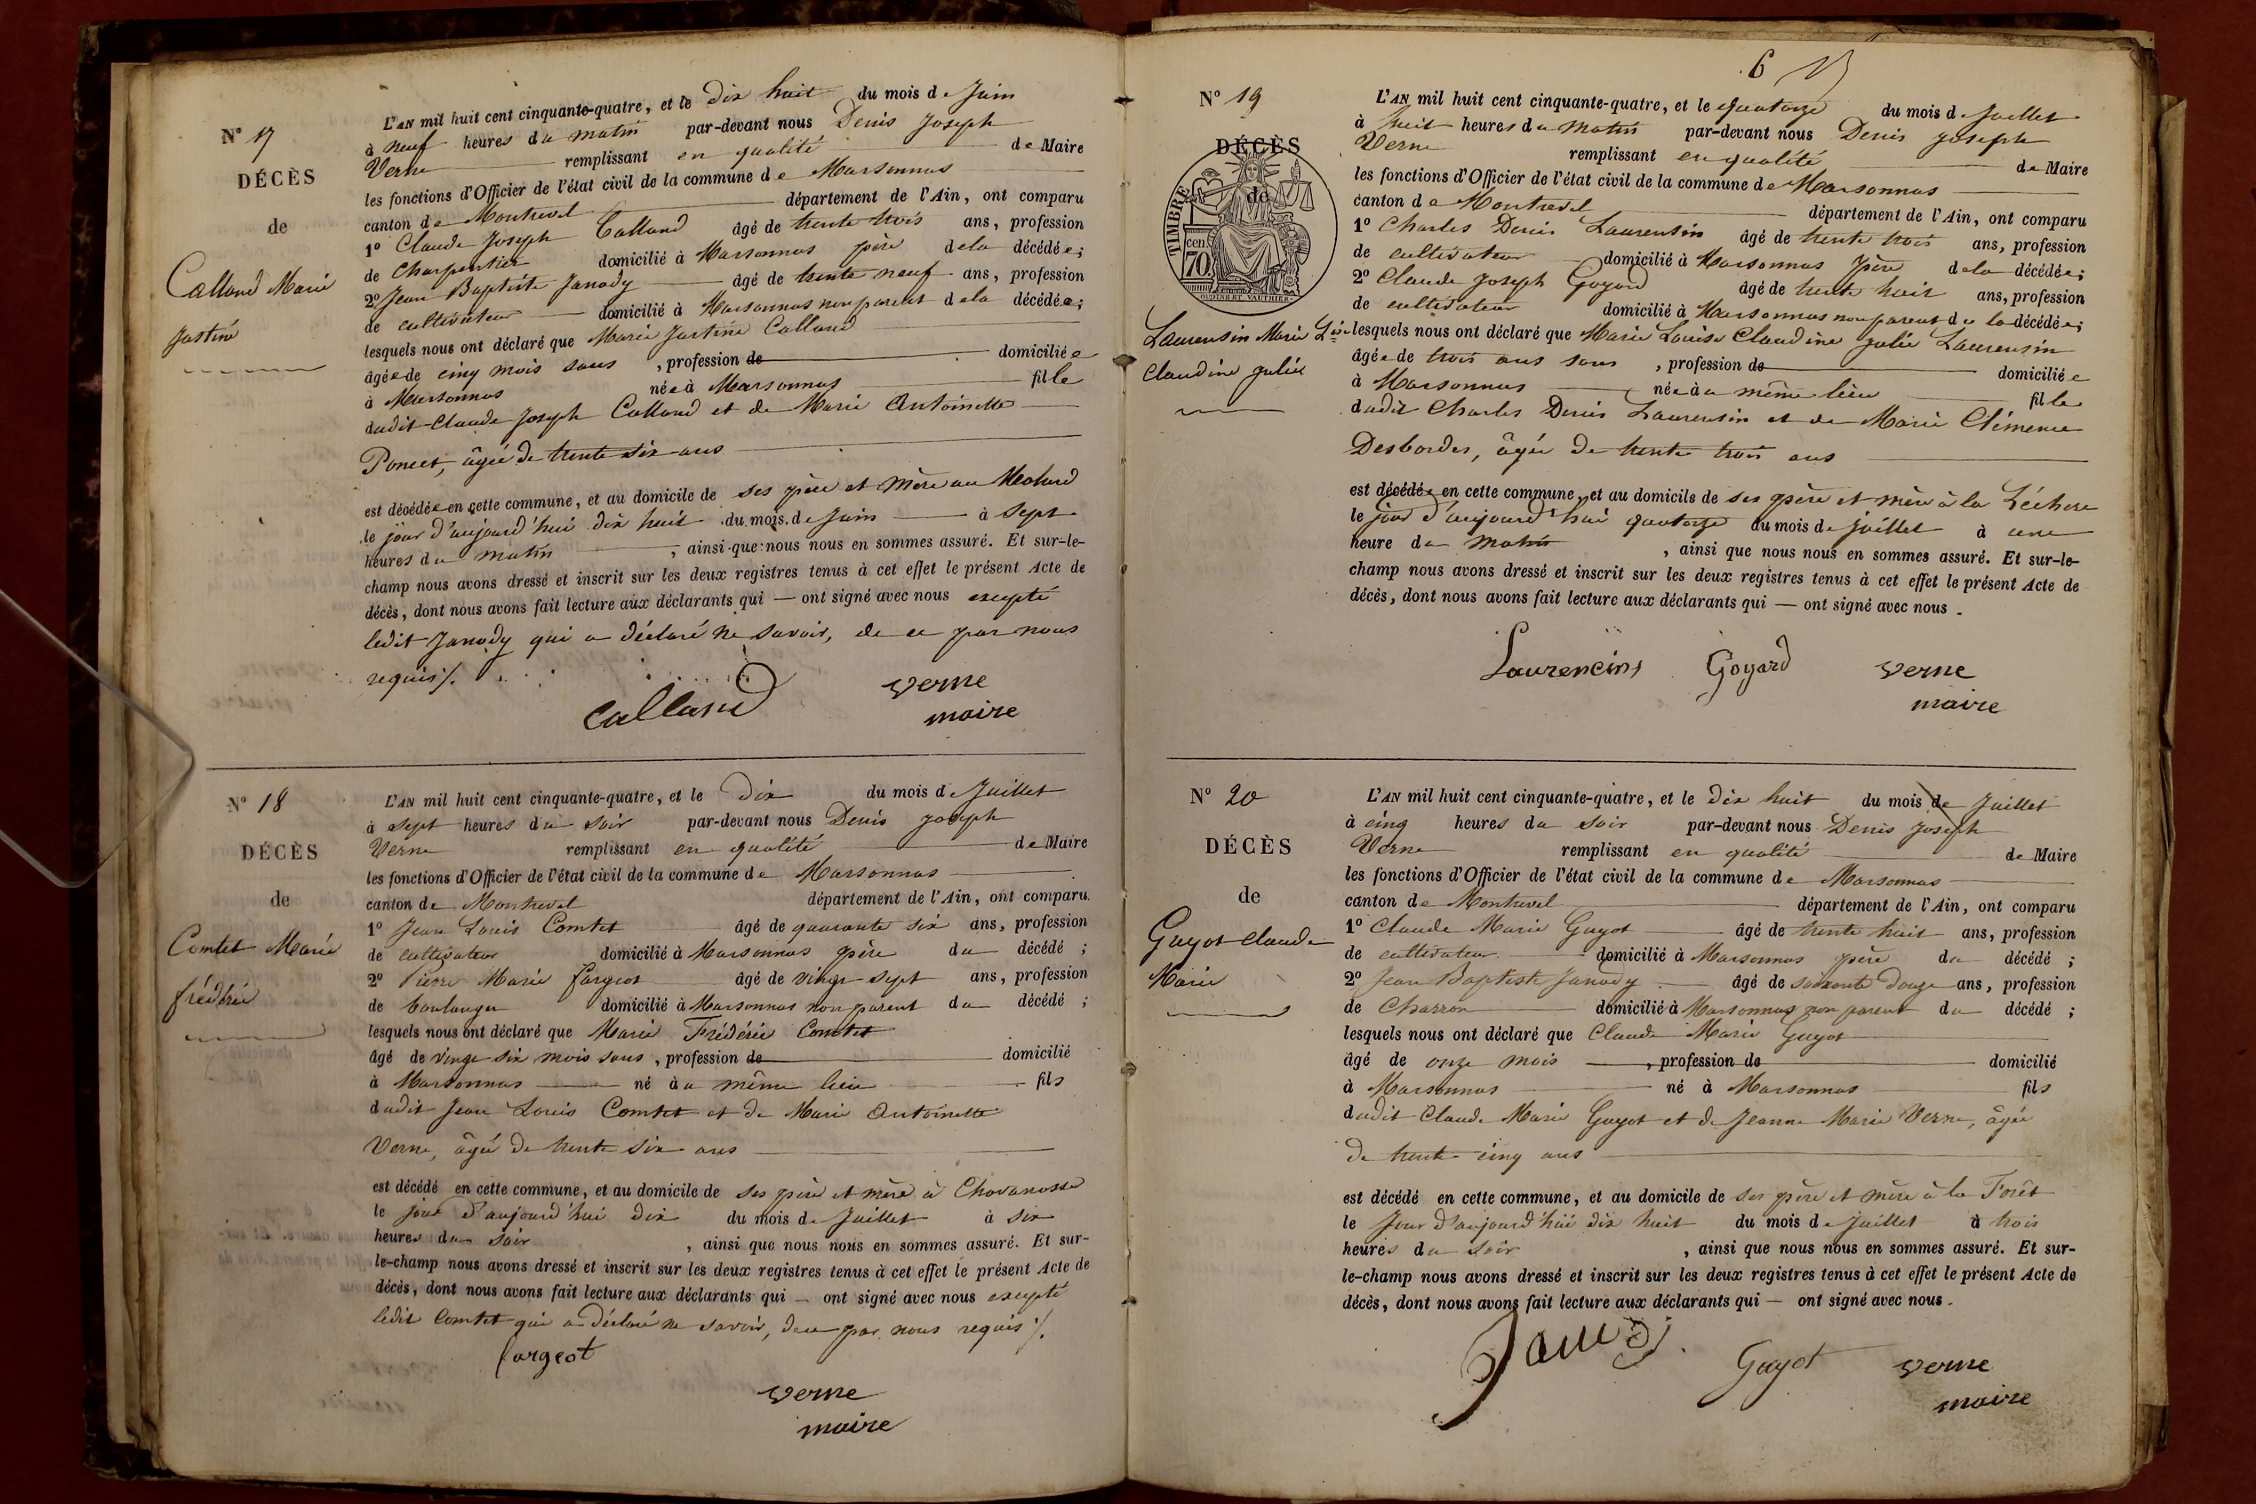 N° 17
DÉCÈS
de
Calland Marie
Justine
L'AN mil huit cent cinquante-quatre, et le dix huit du mois de Juin
à neuf heures du matin par-devant nous Denis Joseph
Verne remplissant en qualité de Maire
les fonctions d'Officier de l'état civil de la commune de Marsonnas
canton de Montrevel département de l'Ain, ont comparu
1° Claude Joseph Calland âgé de trente trois ans, profession
de Charpentier domicilié à Marsonnas père de la décédée;
2° Jean Baptiste Janody âgé de trente neuf ans, profession
de cultivateur domicilié à Marsonnas non parent de la décédée;
lesquels nous ont déclaré que Marie Justine Calland
âgée de cinq mois sans, profession de domiciliée
à Marsonnas née à Marsonnas fille
dudit Claude Joseph Calland et de Marie Antoinette
Poncet, âgée de trente six ans
est décédée en cette commune, et au domicile de ses père et mère au
le jour d'aujourd'hui dix huit du mois de Juin à Sept
heures du matin, ainsi que nous nous en sommes assuré. Et sur-le-
champ nous avons dressé et inscrit sur les deux registres tenus à cet effet le présent Acte de
décès, dont nous avons fait lecture aux déclarants qui — ont signé avec nous excepté
ledit Janody qui a déclaré ne savoir, de ce par nous
requis /.
Calland verne
maire
N° 18
DÉCÈS
de
Comtet Marie
frédéric
L'AN mil huit cent cinquante-quatre, et le Dix du mois de Juillet
à sept heures du soir par-devant nous Denis Joseph
Verne remplissant en qualité de Maire
les fonctions d'Officier de l'état civil de la commune de Marsonnas
canton de Montrevel département de l'Ain, ont comparu
1° Jean Louis Comtet âgé de quarante six ans, profession
de cultivateur domicilié à Marsonnas père du décédé;
2° Pierre Marie fargeot âgé de vingt sept ans, profession
de boulanger domicilié à Marsonnas non parent du décédé;
lesquels nous ont déclaré que Marie Frédéric Comtet
âgé de vingt six mois sans, profession de domicilié
à Marsonnas né au même lieu fils
dudit Jean Louis Comtet et de Marie Antoinette
Verne, âgée de trente six ans
est décédé en cette commune, et au domicile de ses père et mère à
le jour d'aujourd'hui dix du mois de Juillet à six
heures du soir, ainsi que nous nous en sommes assuré. Et sur-
le-champ nous avons dressé et inscrit sur les deux registres tenus à cet effet le présent Acte de
décès, dont nous avons fait lecture aux déclarants qui — ont signé avec nous excepté
ledit Comtet qui a déclaré ne savoir, de ce par nous requis /.
fargeot
verne
maire
6
N° 19
DÉCÈS
de
TIMBRE
70 cen
Laurensin Marie Lse
Claudine Julie
L'AN mil huit cent cinquante-quatre, et le quatorze du mois de Juillet
à huit heures du matin par-devant nous Denis Joseph
Verne remplissant en qualité de Maire
les fonctions d'Officier de l'état civil de la commune de Marsonnas
canton de Montrevel département de l'Ain, ont comparu
1° Charles Denis Laurensin âgé de trente trois ans, profession
de cultivateur domicilié à Marsonnas père de la décédée;
2° Claude Joseph Goyard âgé de trente huit ans, profession
de cultivateur domicilié à Marsonnas non parent de la décédée;
lesquels nous ont déclaré que Marie Louise Claudine Julie Laurensin
âgée de trois ans sans, profession de domiciliée
à Marsonnas née au même lieu fille
dudit Charles Denis Laurensin et de Marie Clémence
Desbordes, âgée de trente trois ans
est décédée en cette commune, et au domicile de ses père et mère à la Léchere
le jour d'aujourd'hui quatorze du mois de juillet à une
heure du matin, ainsi que nous nous en sommes assuré. Et sur-le-
champ nous avons dressé et inscrit sur les deux registres tenus à cet effet le présent Acte de
décès, dont nous avons fait lecture aux déclarants qui — ont signé avec nous.
Laurencins Goyard verne
maire
N° 20
DÉCÈS
de
Guyot Claude
Marie
L'AN mil huit cent cinquante-quatre, et le dix huit du mois de Juillet
à cinq heures du soir par-devant nous Denis Joseph
Verne remplissant en qualité de Maire
les fonctions d'Officier de l'état civil de la commune de Marsonnas
canton de Montrevel département de l'Ain, ont comparu
1° Claude Marie Guyot âgé de trente huit ans, profession
de cultivateur domicilié à Marsonnas père du décédé;
2° Jean Baptiste Janody âgé de soixante douze ans, profession
de Charron domicilié à Marsonnas non parent du décédé;
lesquels nous ont déclaré que Claude Marie Guyot
âgé de onze mois, profession de domicilié
à Marsonnas né à Marsonnas fils
dudit Claude Marie Guyot et de Jeanne Marie Verne, âgée
de trente cinq ans
est décédé en cette commune, et au domicile de ses père et mère à la Forêt
le Jour d'aujourd'hui dix huit du mois de Juillet à trois
heures du soir, ainsi que nous nous en sommes assuré. Et sur-
le-champ nous avons dressé et inscrit sur les deux registres tenus à cet effet le présent Acte de
décès, dont nous avons fait lecture aux déclarants qui — ont signé avec nous.
Guyot verne
maire